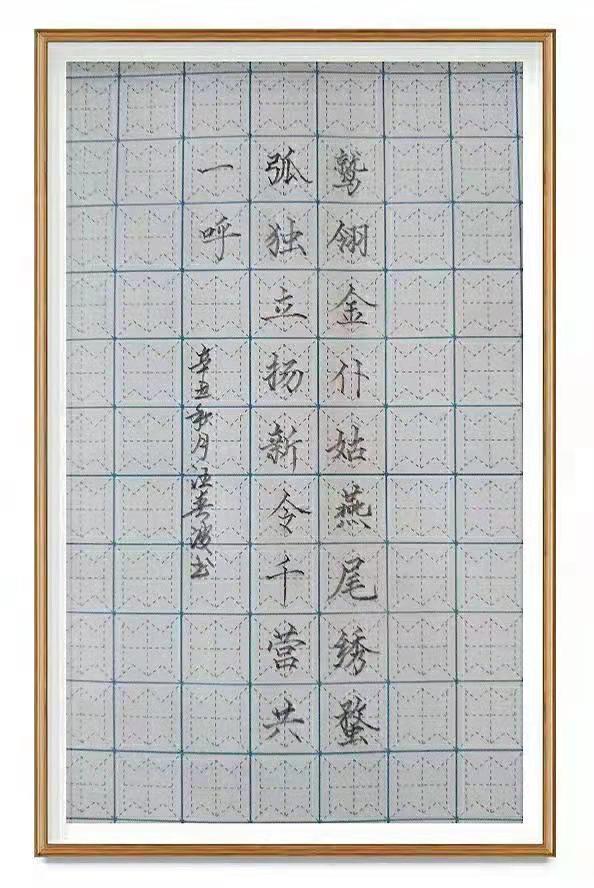 鹫翎金仆姑燕尾绣蝥
弧独立扬新令千营共
一呼
辛丑秋月汪春波书